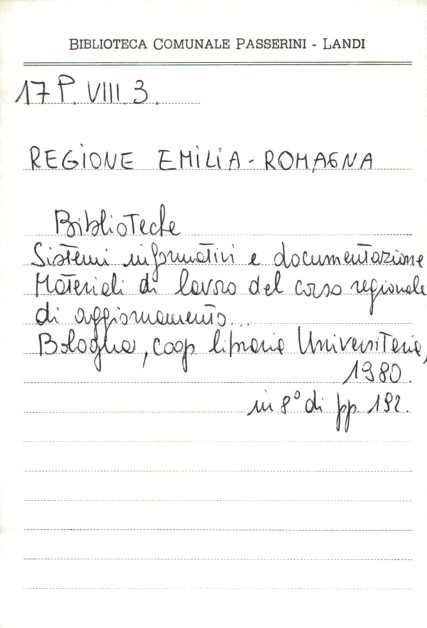 BIBLIOTECA COMUNALE PASSERINI - LANDI
17 P. VIII. 3.
REGIONE EMILIA-ROMAGNA
Biblioteche
Sistemi informativi e documentazione
Materiali di lavoro del corso regionale
di aggiornamento...
Bologna, coop. libraria Universitaria,
1980.
in 8° di pp 192.